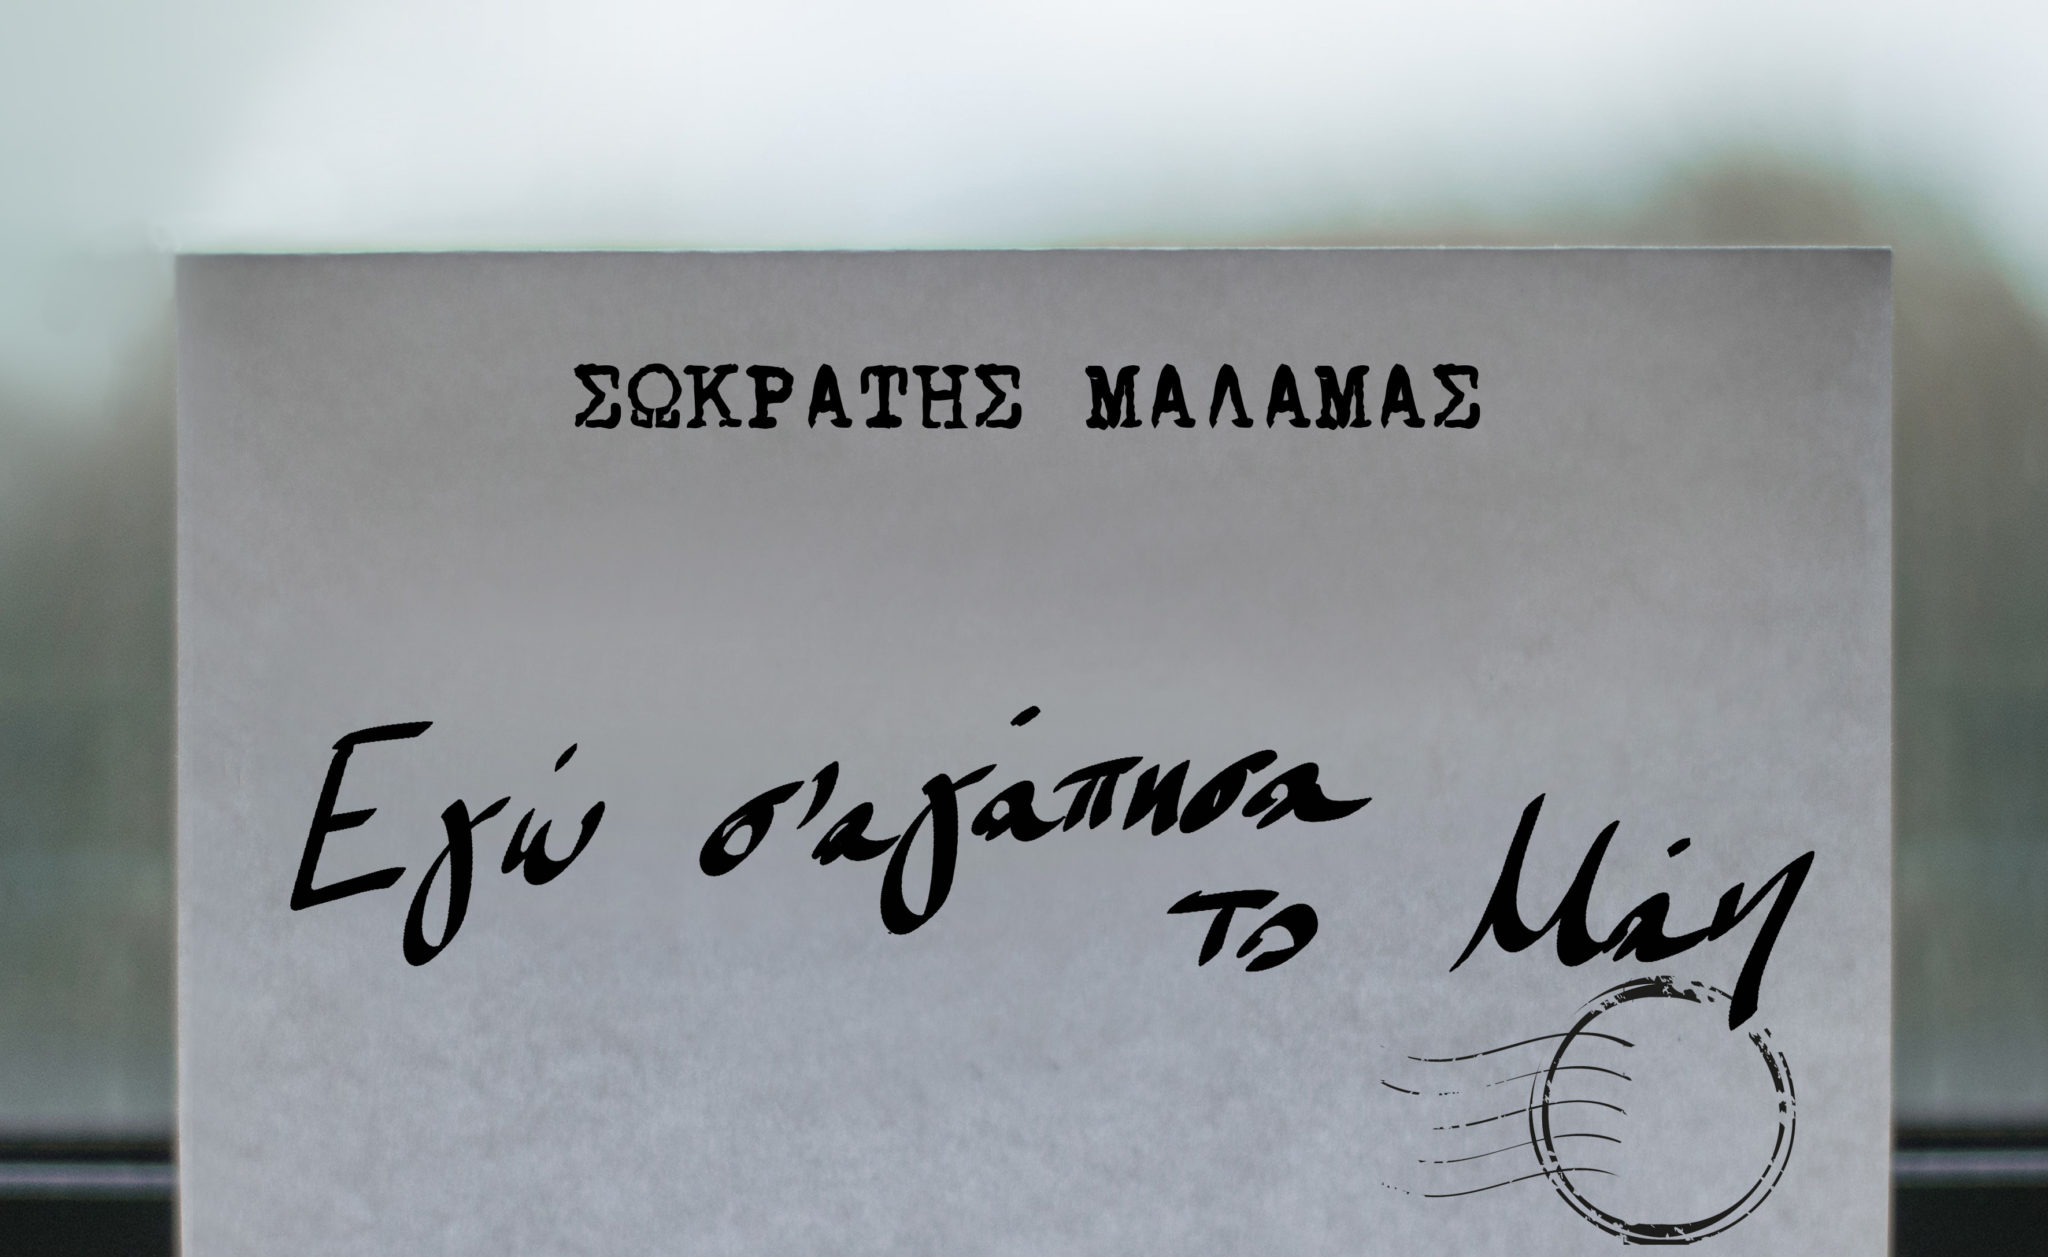 ΣΩΚΡΑΤΗΣ ΜΑΛΑΜΑΣ
Εγώ σ'αγάπησα
το Μάη